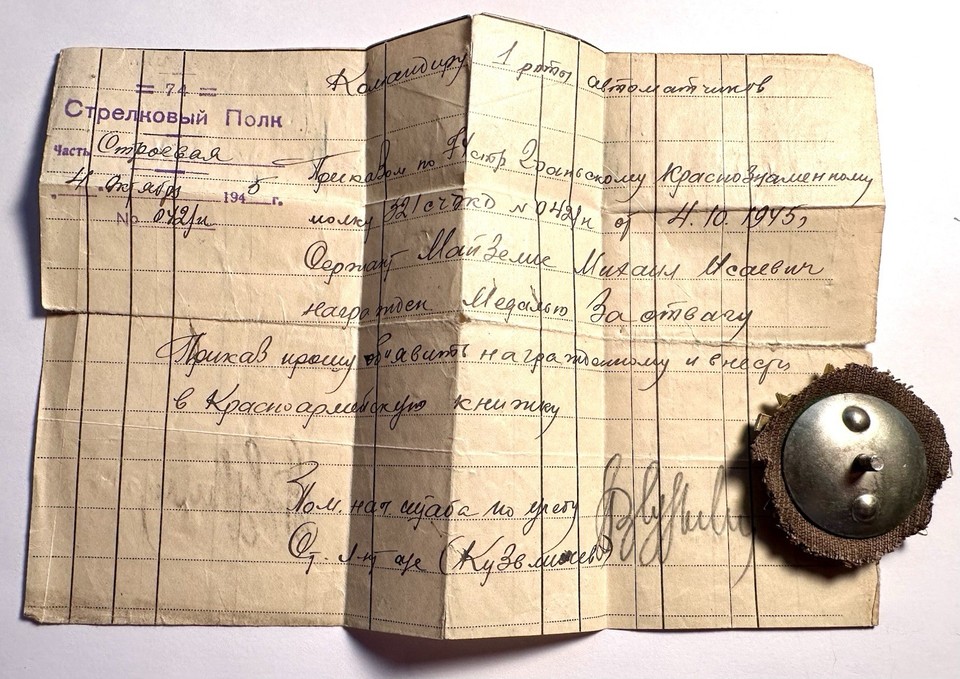 = 74 =
Стрелковый Полк
Часть Строевая
4 октября 1945 г.
№ 042/н
Командиру 1 роты автоматчиков
Приказом по 74 стр Краснознаменному
полку № 042/н от 4.10.1945,
Сержант Михаил Исаевич
награжден Медалью За отвагу
Приказ прошу объявить награжденному и внести
в Красноармейскую книжку
Пом. нач штаба по учету
Ст. л-т